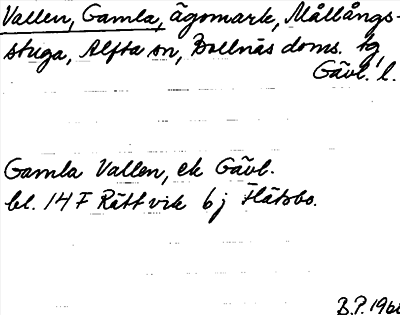 Vallen, Gamla, ägomark, Mållångs-
stuga, Alfta sn, Bollnäs doms. tg
Gävl. l.
Gamla Vallen, ek Gävl.
bl. 14 F Rättvik 6 j Flätsbo.
B.P.